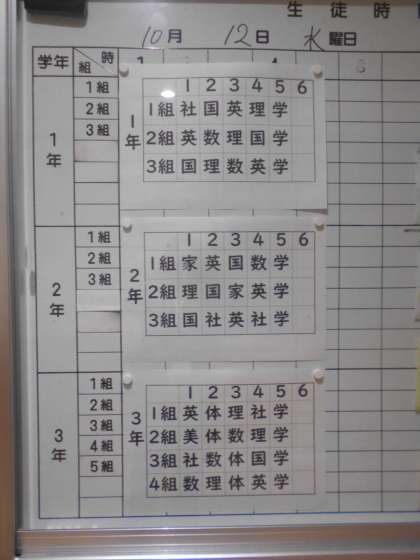 生徒時
10月 12日 水曜日
学年 組 時
1年
1組
2組
3組
1年
1 2 3 4 5 6
1組 社 国 英 理 学
2組 英 数 理 国 学
3組 国 理 数 英 学
2年
1組
2組
3組
2年
1 2 3 4 5 6
1組 家 英 国 数 学
2組 理 国 家 英 学
3組 国 社 英 社 学
3年
1組
2組
3組
4組
5組
3年
1 2 3 4 5 6
1組 英 体 理 社 学
2組 美 体 数 理 学
3組 社 数 体 国 学
4組 数 理 体 英 学